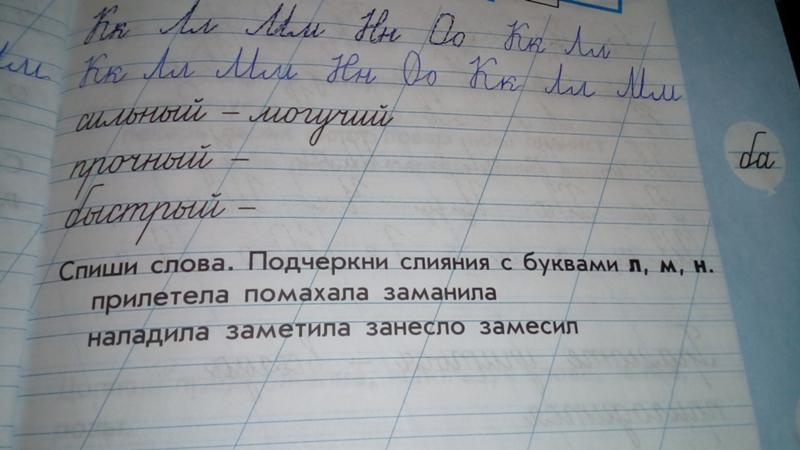 Кк Лл Мм Нн Оо Кк Лл
Мм Кк Лл Мм Нн Оо Кк Лл Мм
сильный – могучий
прочный –
да
быстрый –
Спиши слова. Подчеркни слияния с буквами л, м, н.
прилетела помахала заманила
наладила заметила занесло замесил